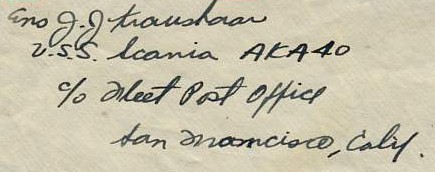 Ens J. J. Kraushaar
U.S.S. Scania AKA40
c/o Fleet Post Office
San Francisco, Calif.